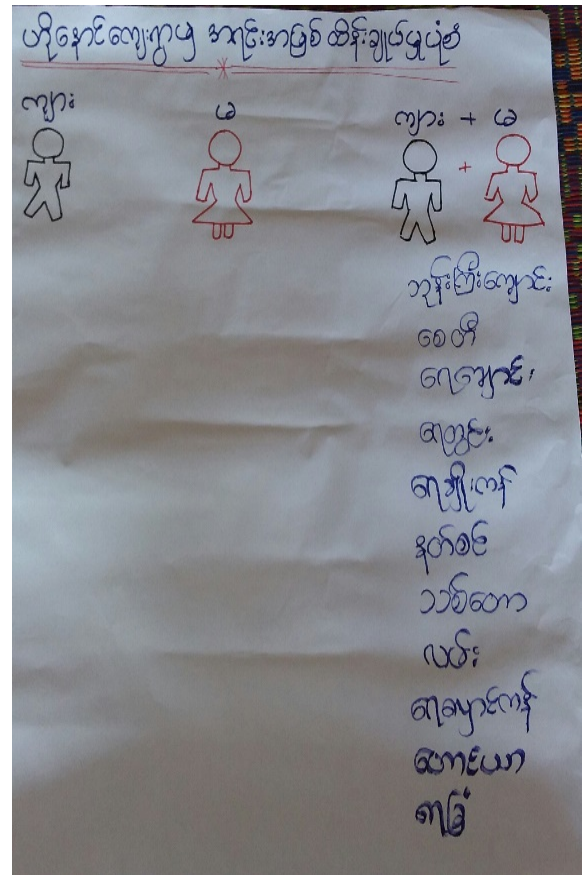 ဟိုနောင်ကျေးရွာမှ အရင်းအမြစ် ထိန်းချုပ်မှုပုံစံ
ကျား
မ
ကျား + မ
+
ဘုန်းကြီးကျောင်း
စေတီ
ရေချောင်း
ရေတွင်း
ရေချိုးကန်
နတ်စင်
သစ်တော
လမ်း
ရေလှောင်ကန်
တောင်ယာ
ရာခြံ